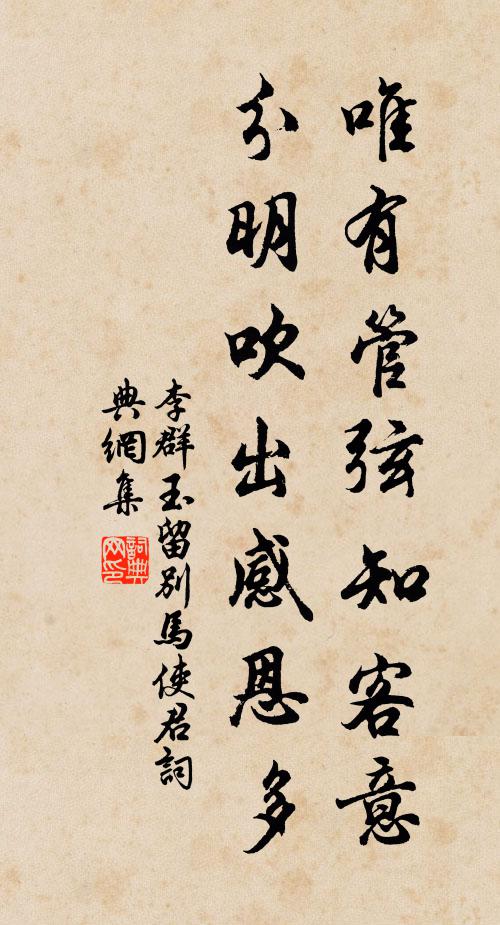 唯有管弦知客意
分明吹出感恩多
李群玉留别馬使君詞
典網集
詞典
网印